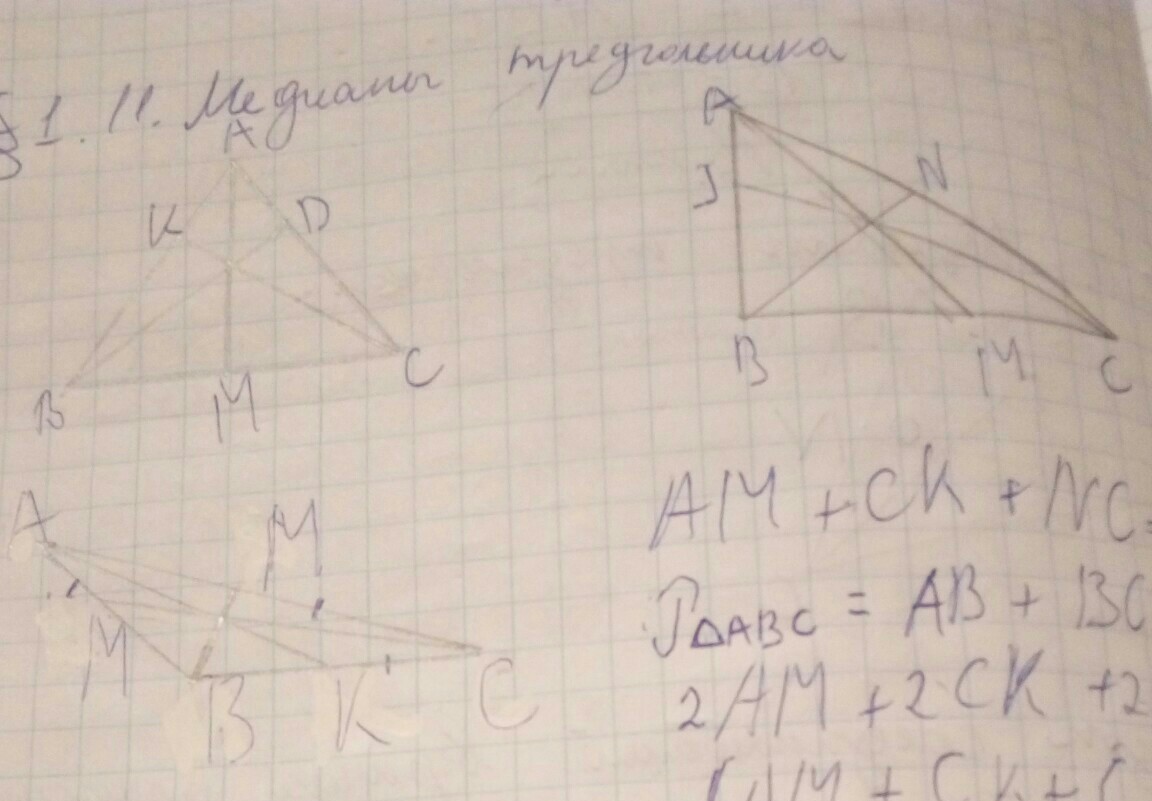 1. 11. Медианы треугольника
A
K D
B M C
A
J N
B M C
A M
M B K C
AM + CK + NC =
P△ABC = AB + BC
2AM + 2CK + 2